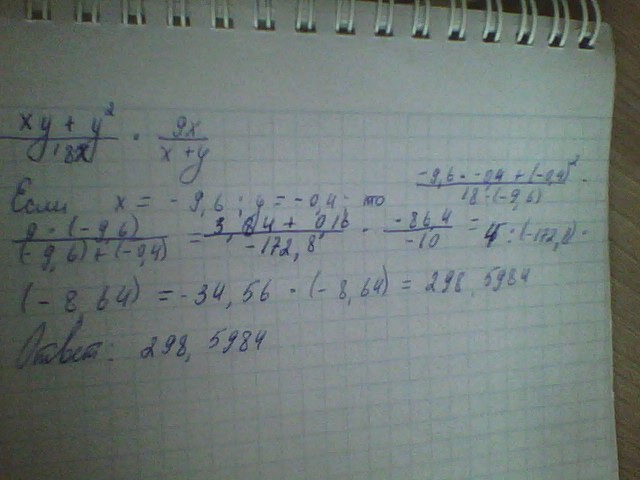 (xy + y²)/(18x) · (9x)/(x + y)
Если x = -9,6 ; y = -0,4 то (-9,6 · -0,4 + (-0,4)²)/(18 · (-9,6)) ·
(9 · (-9,6))/((-9,6) + (-0,4)) = (3,84 + 0,16)/(-172,8) · (-86,4)/(-10) = 4 : (-172,8) ·
(-8,64) = -34,56 · (-8,64) = 298,5984
Ответ: 298,5984